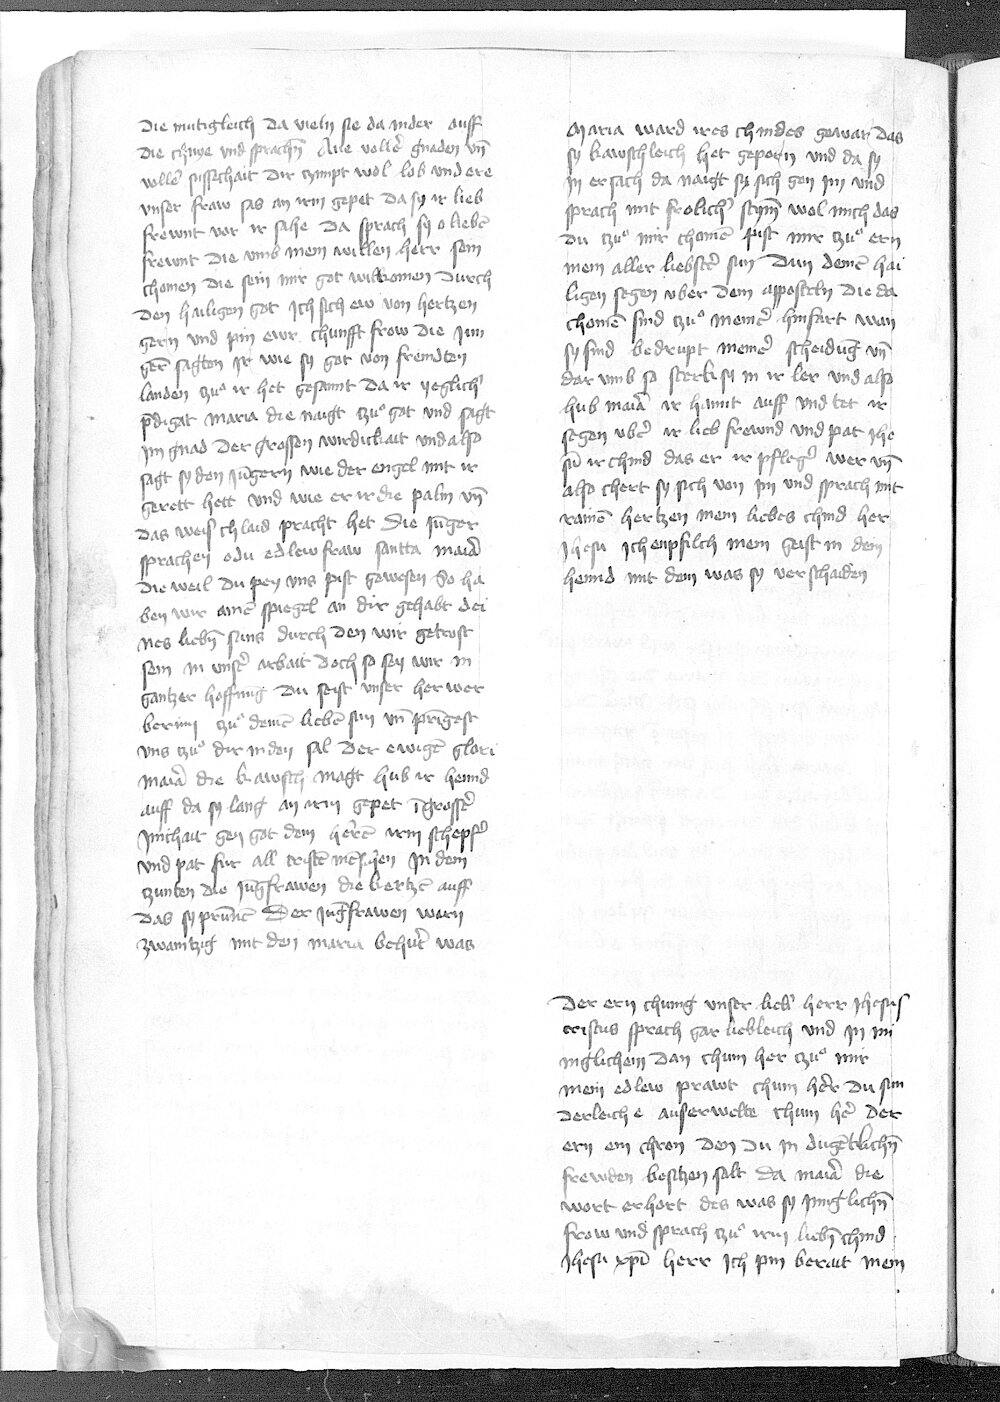 die mutigleich da vieln sie da nider auff
die chnye vnd sprachn̄ Aue voller gnaden vn̄
voller susschait dir tzimpt wol lob vnd ere
vnser fraw sas an irm gepet da sy ir lieb
frewnt vor ir sahe da sprach sy o liebē
frewnt die vmb mein willen herr sein
chomen die sein mir got wilkomen durch
den hailigen got Ich sich ew von hertzen
gern vnd pin ewr chunfft frow die Jun
ger̄ sagten Jr wie sy got von fremdten
landen tzuͦ ir het gesamt da ir yeglicher
p̄digat maria die naigt tzuͦ got vnd sagt
im gnad der grossen wirdickait vnd also
sagt sy den Jūgern wie der engel mit ir
gerett hett vnd wie er ir die palm vn̄
das weis chlaid pracht het Die Jūger
sprachen o du edlew fraw santta maiā
die weil du pey vns pist gewesen So ha
ben wir ainē spiegel an dir gehabt dei
nes liebn̄ suns durch den wir getrost
sein in vnser arbait doch so sey wir in
gantzer hoffnūg du seist vnser her wer
berinn tzuͦ deinē liebē sun vn̄ prīgest
vns tzuͦ dir in den sal der ewigē glori
maiā die kawsch magt hub ir hennd
auff da sy lang an irm gepet ī grosser
Jnichait gen got dem herē irm schepfer
vnd pat fur all cristē mēschen In dem
tzunten die Jūgfrawen die kertzē auff
das sy prūnē Der Jūgfrawen warn
zwaintzig mit den maria behut was
Maria ward ires chindes gewar das
sy kawschleich het geporn vnd da sy
in ersach da naigt sy sich gen im vnd
sprach mit frolicher stym̄ wol mich das
du tzuͦ mir chomē pist mir tzuͦ ern
mein aller liebster sun Dun deinē hai
ligen segen vber dein apposteln die da
chomē sind tzuͦ meiner hinfart wan
sy sind bedrupt meiner scheidūg vn̄
dar vmb so sterk sy in ir ler vnd also
hub maiā ir hannt auff vnd tet ir
segen vber ir lieb frewnd vnd pat Jhe
sū ir chind das er ir pfleger wer vn̄
also chert sy sich von in vnd sprach mit
rainē hertzen mein liebes chind her
Jhesu Ich enpfilch mein geist in dein
hennd mit dem was sy verschaiden
Der ern chunig vnser lieber herr Jhesus
cristus sprach gar liebleich vnd in in
niglichem dan chum her tzuͦ mir
mein edlew prawt chum her du sun
derleiche auserwelte chum her der
ern ein chron den du in dugētlichn̄
frewden besitzen solt Da maiā die
wort erhort des was sy Jniglichn̄
frow vnd sprach tzuͦ irm liebn̄ chind
Jhesu xp̄i herr Ich pin berait mein